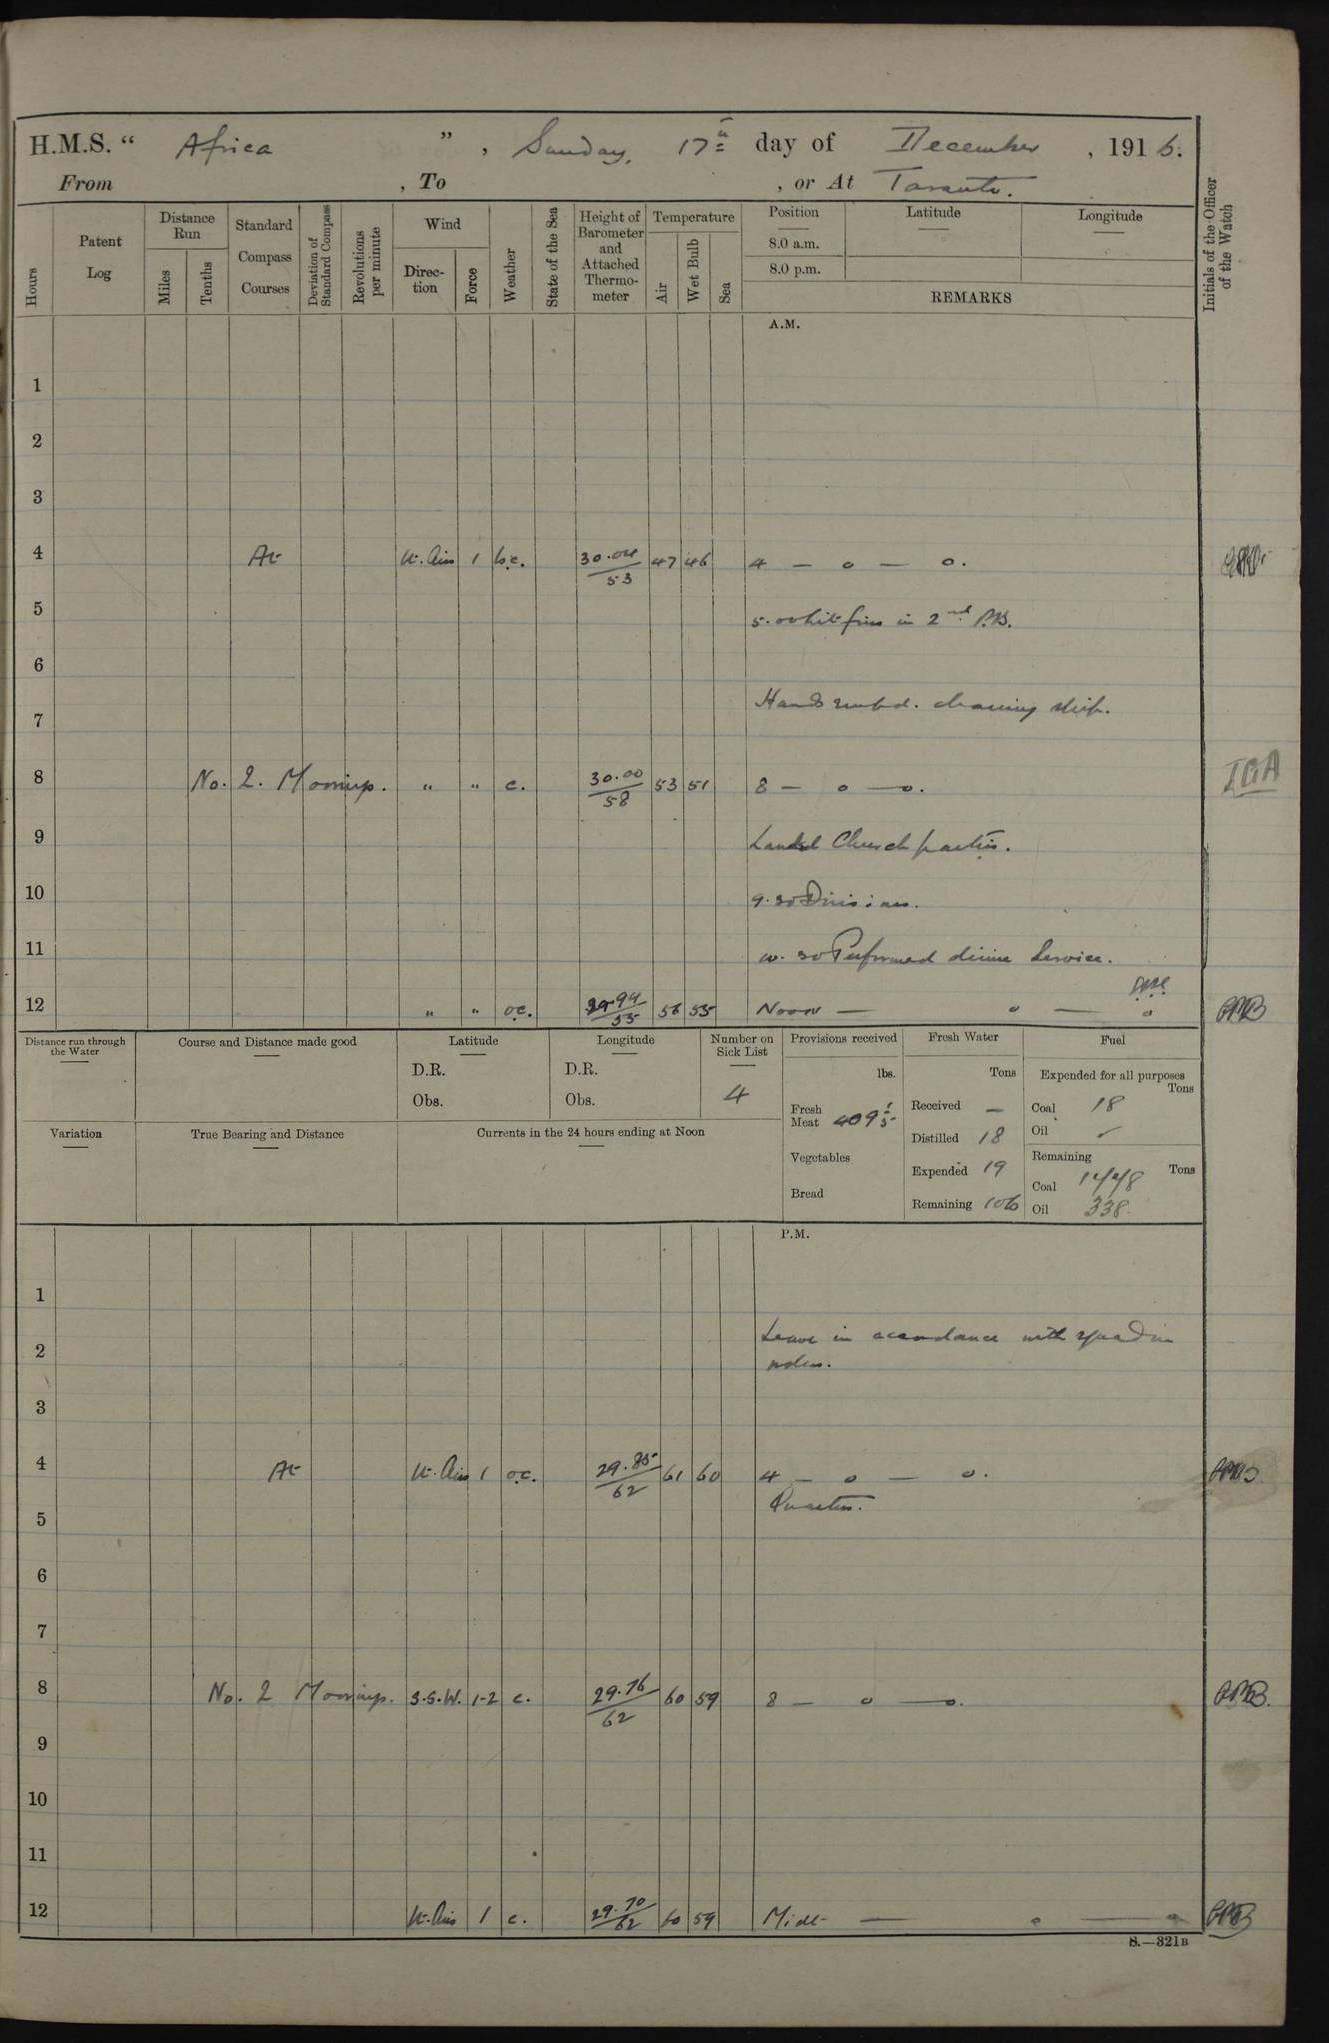 H.M.S. “ Africa ” , Sunday, 17th day of December , 1916.
From , To , or At Taranto.
Hours
Patent Log
Distance Run
Miles
Tenths
Standard Compass Courses
Deviation of Standard Compass
Revolutions per minute
Wind
Direction
Force
Weather
State of the Sea
Height of Barometer and Attached Thermometer
Temperature
Air
Wet Bulb
Sea
Position
8.0 a.m.
8.0 p.m.
Latitude
Longitude
REMARKS
Initials of the Officer of the Watch
A.M.
1
2
3
4 At Lt. Airs 1 b.c. 30.04/53 47 46 4 — o — o.
5 5.0 in 2nd
6
7 Hands cleaning ship.
8 No. 2. Moorings. " " c. 30.00/58 53 51 8 — o — o. IGA
9 Landed Church parties.
10 9.30 Divisions.
11 10.30 Performed divine Service.
12 " " o.c. 29.94/55 56 55 Noon — o — o
Distance run through the Water
Course and Distance made good
Latitude
D.R.
Obs.
Longitude
D.R.
Obs.
Number on Sick List
4
Provisions received
lbs.
Fresh Meat 409
Vegetables
Bread
Fresh Water
Tons
Received —
Distilled 18
Expended 19
Remaining 106
Fuel
Expended for all purposes
Tons
Coal 18
Oil ✓
Remaining
Tons
Coal 1448
Oil 338
Variation
True Bearing and Distance
Currents in the 24 hours ending at Noon
P.M.
1
2 Leave in accordance with squadron
orders.
3
4 At Lt. Airs 1 o.c. 29.85/62 61 60 4 — o — o.
Quarters.
5
6
7
8 No. 2 Moorings. S.S.W. 1-2 c. 29.76/62 60 59 8 — o — o.
9
10
11
12 Lt. Airs 1 c. 29.70/62 60 59 Midt — o — o
S.—321B